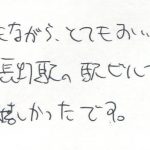 ながら、とてもおい
長町駅の駅ビルで
嬉しかったです。